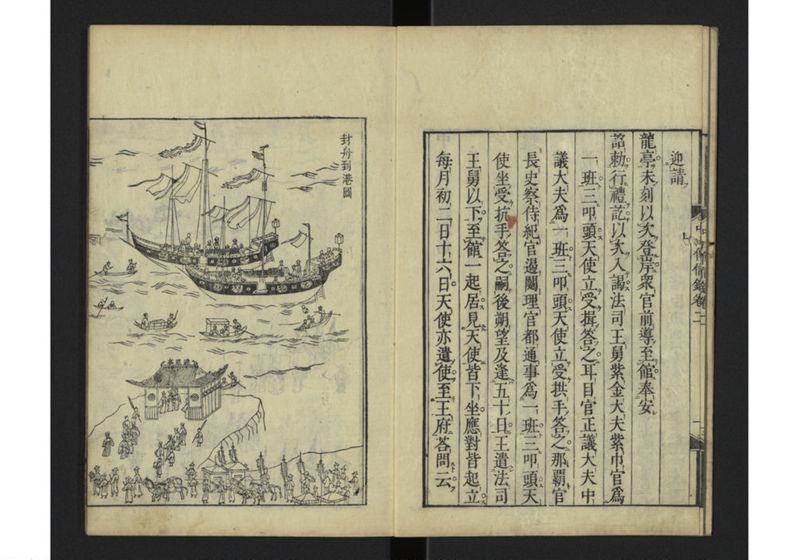 中山傳信錄卷二
迎請
龍亭未刻以次登岸衆官前導至館奉安
詔勅行禮訖以次入謁法司王舅紫金大夫紫巾官爲
一班三叩頭天使立受揖答之耳目官正議大夫中
議大夫爲一班三叩頭天使立受拱手答之那覇官
長史察侍紀官遏闥理官都通事爲一班三叩頭天
使坐受抗手答之嗣後朔望及逢五十日王遣法司
王舅以下至館一起居見天使皆下坐應對皆起立
每月初二日十六日天使亦遣使至王府荅問云
封舟到港圖